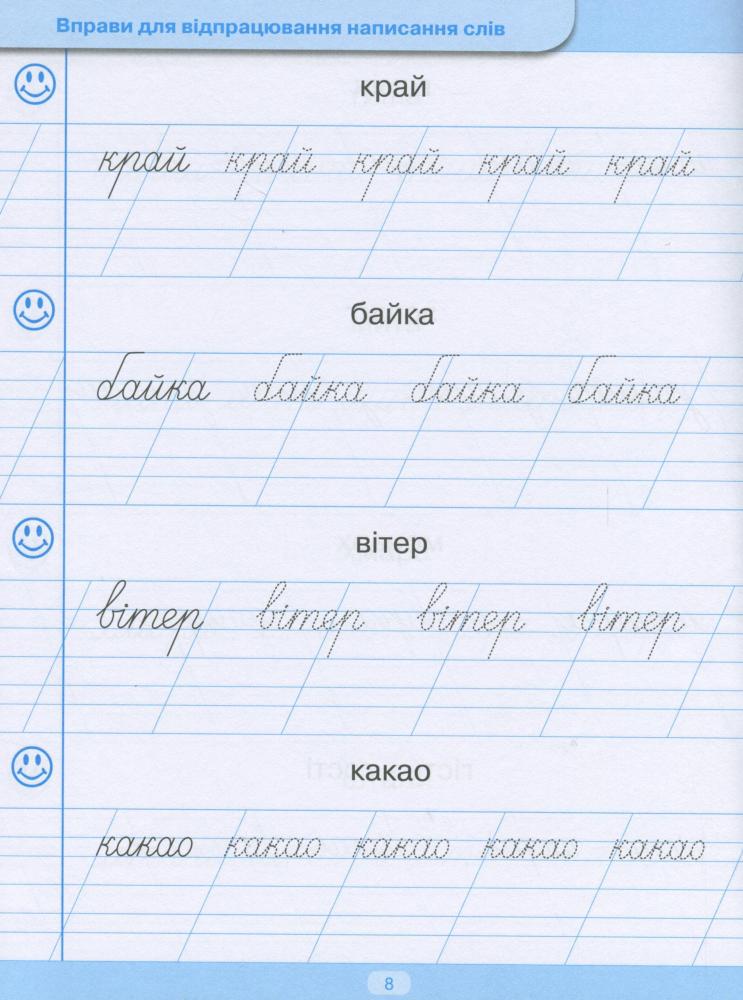 Вправи для відпрацювання написання слів
край
край край край край край
байка
байка байка байка байка
вітер
вітер вітер вітер вітер
какао
какао какао какао какао какао
8